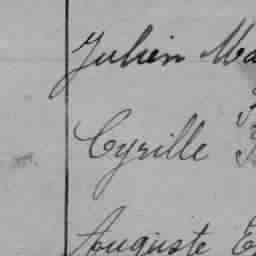 Julien Ma
Cyrille
Auguste E